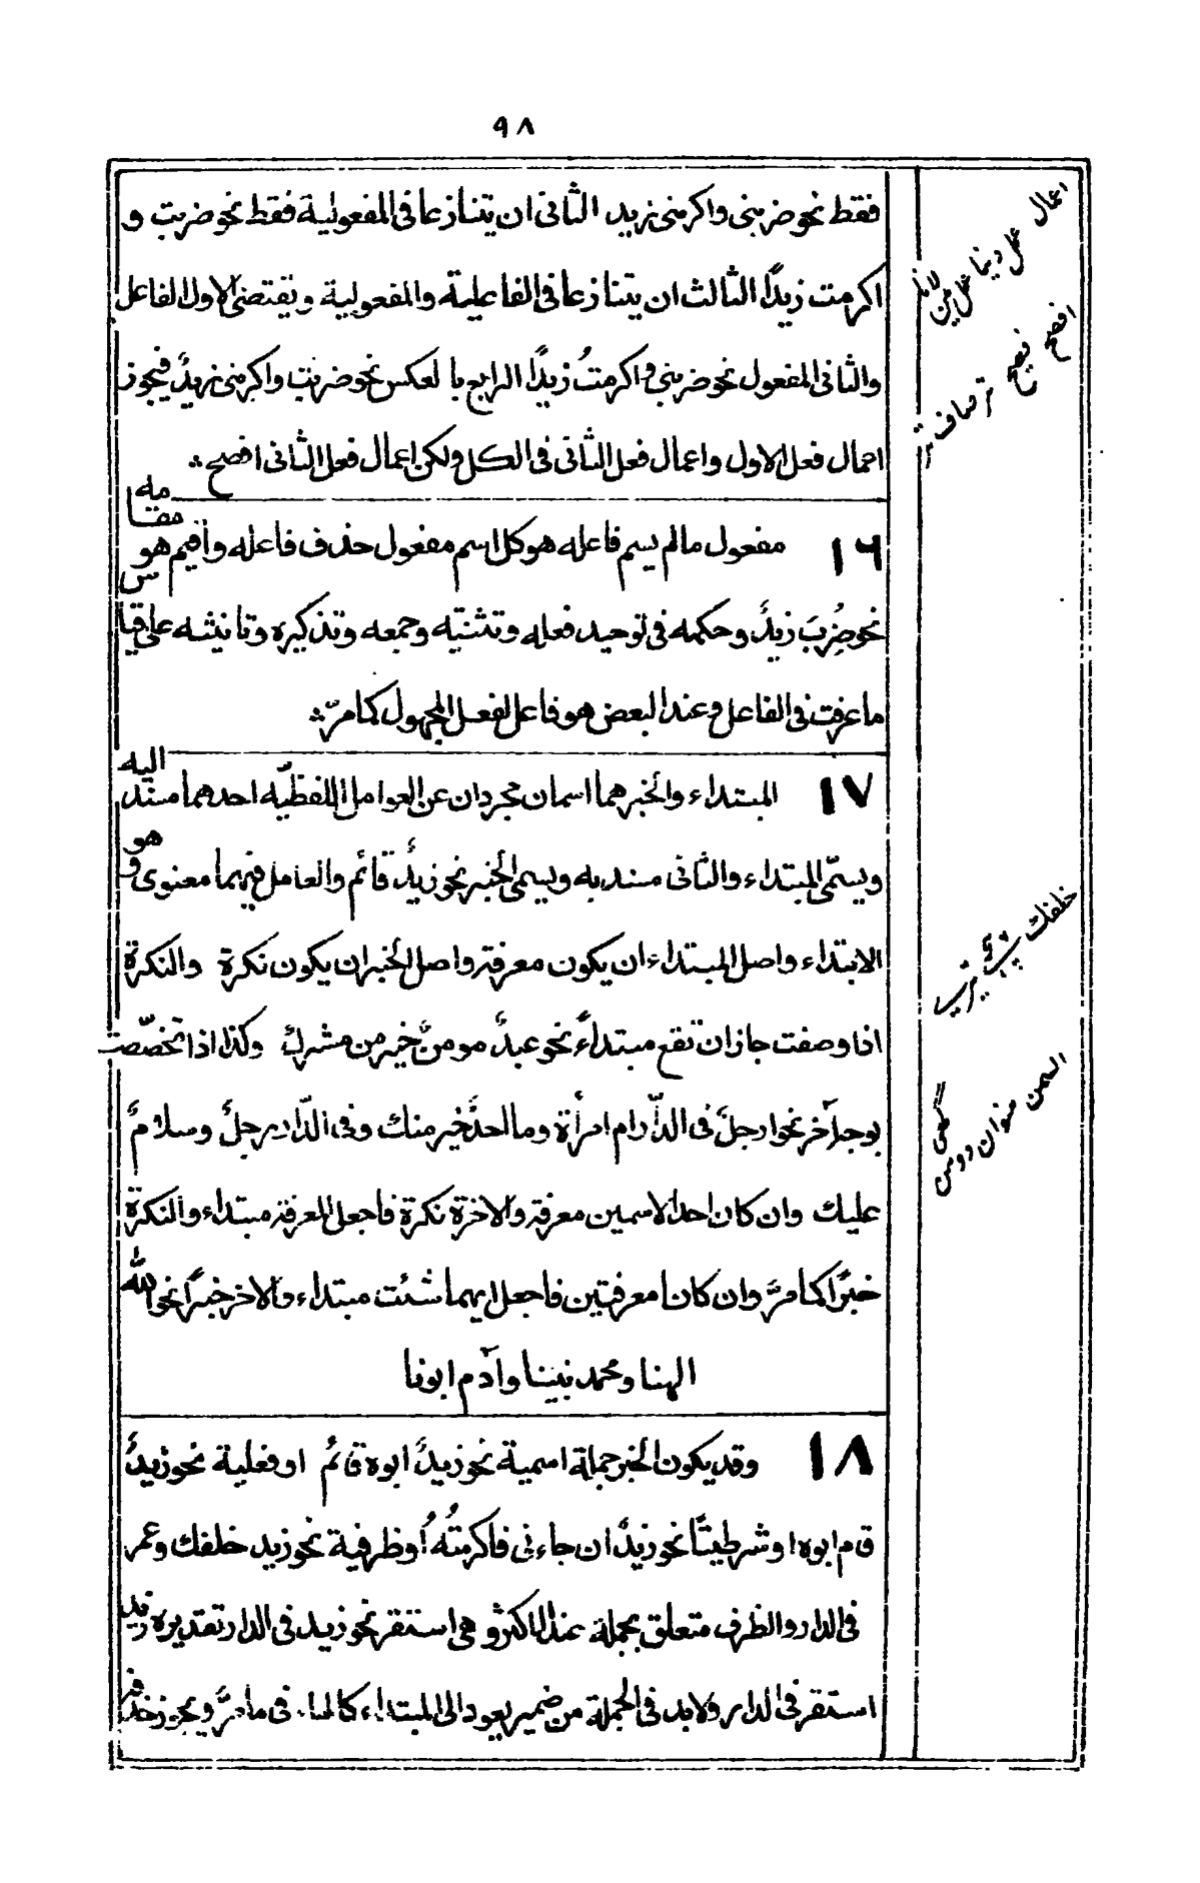 ٩٨
فقط نحو ضربنی واکرمنی زید الثانی ان یتنازعا فی المفعولیة فقط نحو ضربت و
اکرمت زیدًا الثالث ان یتنازعا فی الفاعلیة والمفعولیة ویقتضی الاول الفاعل
والثانی المفعول نحو ضربنی واکرمتُ زیدًا الرابع بالعکس نحو ضربت واکرمنی زیدٌ فیجوز
اعمال فعل الاول واعمال فعل الثانی فی الکل ولکن اعمال فعل الثانی افصح
١٦ مفعول مالم یسم فاعله هو کل اسم مفعول حذف فاعله واقیم هو مقامه
نحو ضُرِبَ زیدٌ وحکمه فی توحید فعله وتثنیته وجمعه وتذکیره وتانیثه علی قیاس
ما عرفت فی الفاعل وعند البعض هو فاعل لفعل المجهول کما مرّ
١٧ المبتداء والخبر هما اسمان مجردان عن العوامل اللفظیّه احدهما مسند الیه
ویسمّی المبتداء والثانی مسند به ویسمی الخبر نحو زیدٌ قائم والعامل فیهما معنوی وهو
الابتداء واصل المبتداء ان یکون معرفة واصل الخبر ان یکون نکرة والنکرة
اذا وصفت جاز ان تقع مبتداءً نحو عبدٌ مومنٌ خیر من مشرك وکذا اذا تخصّصت
بوجه آخر نحو ارجلٌ فی الدّار ام امرأة وما احدٌ خیر منك وفی الدّار رجلٌ وسلامٌ
علیك وان کان احد الاسمین معرفة والاخرة نکرة فاجعل المعرفة مبتداء والنکرة
خبرًا کما مرَّ وان کانا معرفتین فاجعل ایهما شئت مبتداء والاخر خبرًا نحو الله
الهنا ومحمد نبینا وآدم ابونا
١٨ وقد یکون الخبر جملة اسمیة نحو زیدٌ ابوه قائمٌ او فعلیة نحو زیدٌ
قام ابوه او شرطیتًا نحو زیدٌ ان جاءنی فاکرمتُهُ اُوظرفیة نحو زید خلفك وعمر
فی الدار والظرف متعلق بجملة عند الاکثر و هی استقر نحو زید فی الدار تقدیره زید
استقر فی الدار ولابد فی الجملة من ضمیر یعود الی المبتداء کالهاء فی ما مرَّ ویجوز حذفه
اعمال عمل دینا
افصح فصیح تر
خلفك پیچھے تیرے
السمن منوان
گھی دو من